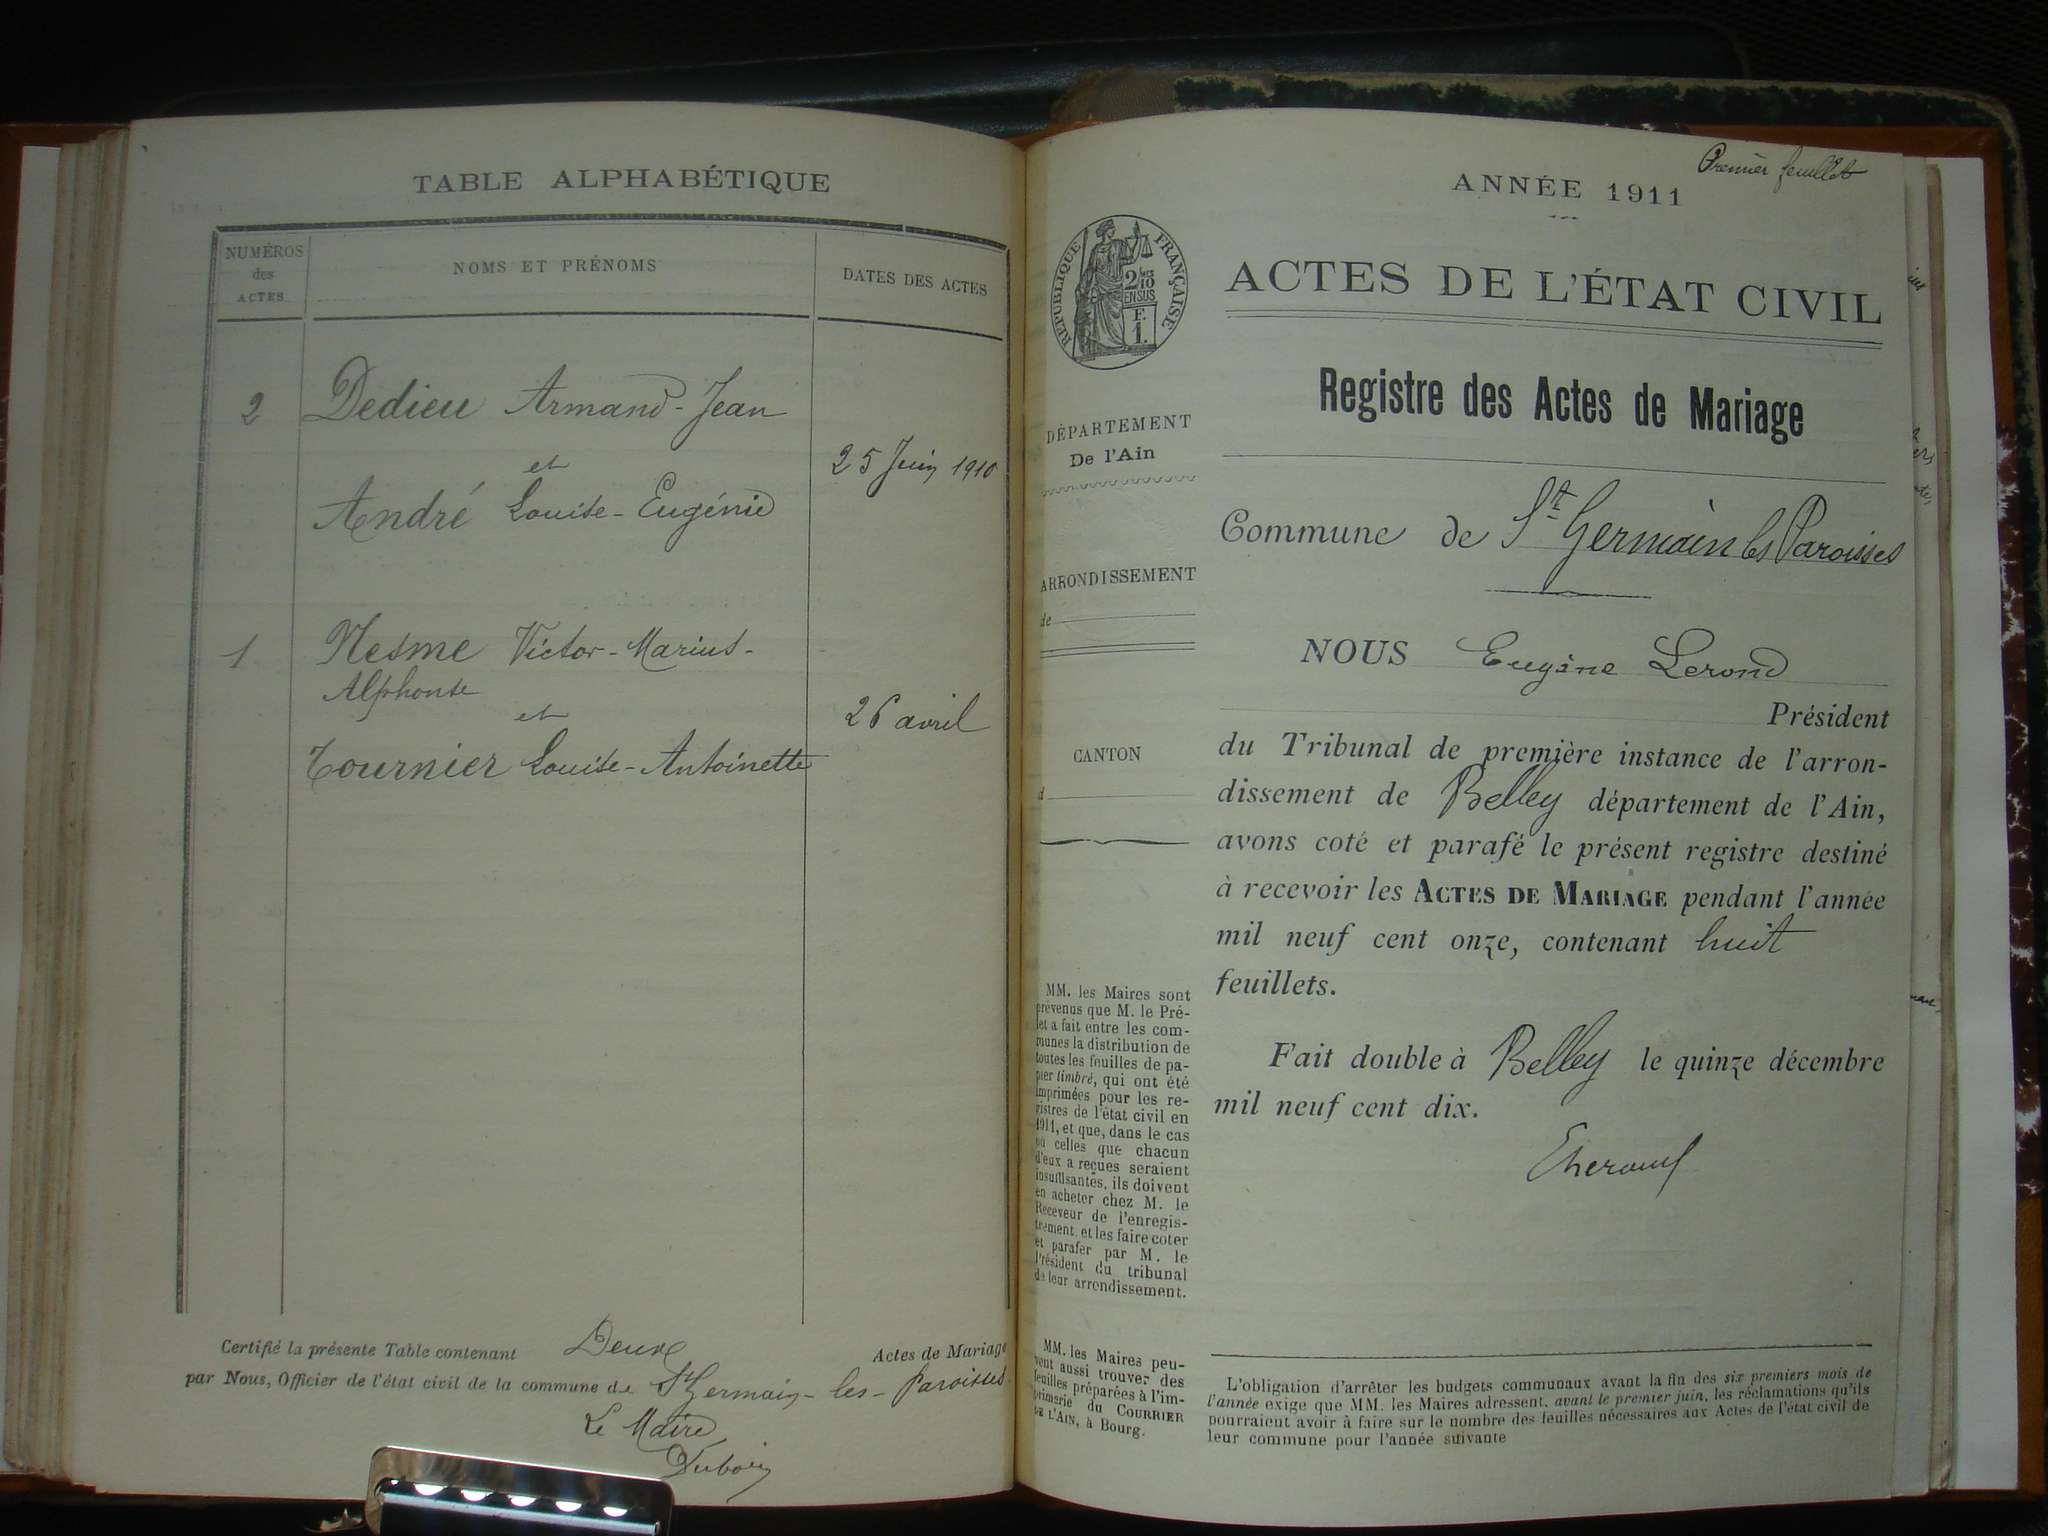 TABLE ALPHABÉTIQUE
NUMÉROS
des
ACTES
NOMS ET PRÉNOMS
DATES DES ACTES
2
Dedieu Armand-Jean
et
25 Juin 1910
André Louise-Eugénie
1
Nesme Victor-Marius-
Alphonse
et
26 avril
Tournier Louise-Antoinette
Certifié la présente Table contenant Deux Actes de Mariage
par Nous, Officier de l'état civil de la commune de St Germain-les-Paroisses.
Le Maire
Dubois
Premier feuillet
ANNÉE 1911
RÉPUBLIQUE FRANÇAISE
2/10
EN SUS
F.
1.
ACTES DE L'ÉTAT CIVIL
Registre des Actes de Mariage
DÉPARTEMENT
De l'Ain
ARRONDISSEMENT
de
CANTON
d
Commune de St Germain les Paroisses
NOUS Eugène Lerond
Président
du Tribunal de première instance de l'arron-
dissement de Belley département de l'Ain,
avons coté et parafé le présent registre destiné
à recevoir les ACTES DE MARIAGE pendant l'année
mil neuf cent onze, contenant huit
feuillets.
Fait double à Belley le quinze décembre
mil neuf cent dix.
MM. les Maires sont
prévenus que M. le Pré-
fet a fait entre les com-
munes la distribution de
toutes les feuilles de pa-
pier timbré, qui ont été
imprimées pour les re-
gistres de l'état civil en
1911, et que, dans le cas
où celles que chacun
d'eux a reçues seraient
insuffisantes, ils doivent
en acheter chez M. le
Receveur de l'enregis-
trement, et les faire coter
et parafer par M. le
Président du tribunal
de leur arrondissement.
MM. les Maires peu-
vent aussi trouver des
feuilles préparées à l'im-
primerie du COURRIER
DE L'AIN, à Bourg.
L'obligation d'arrêter les budgets communaux avant la fin des six premiers mois de
l'année exige que MM. les Maires adressent, avant le premier juin, les réclamations qu'ils
pourraient avoir à faire sur le nombre des feuilles nécessaires aux Actes de l'état civil de
leur commune pour l'année suivante